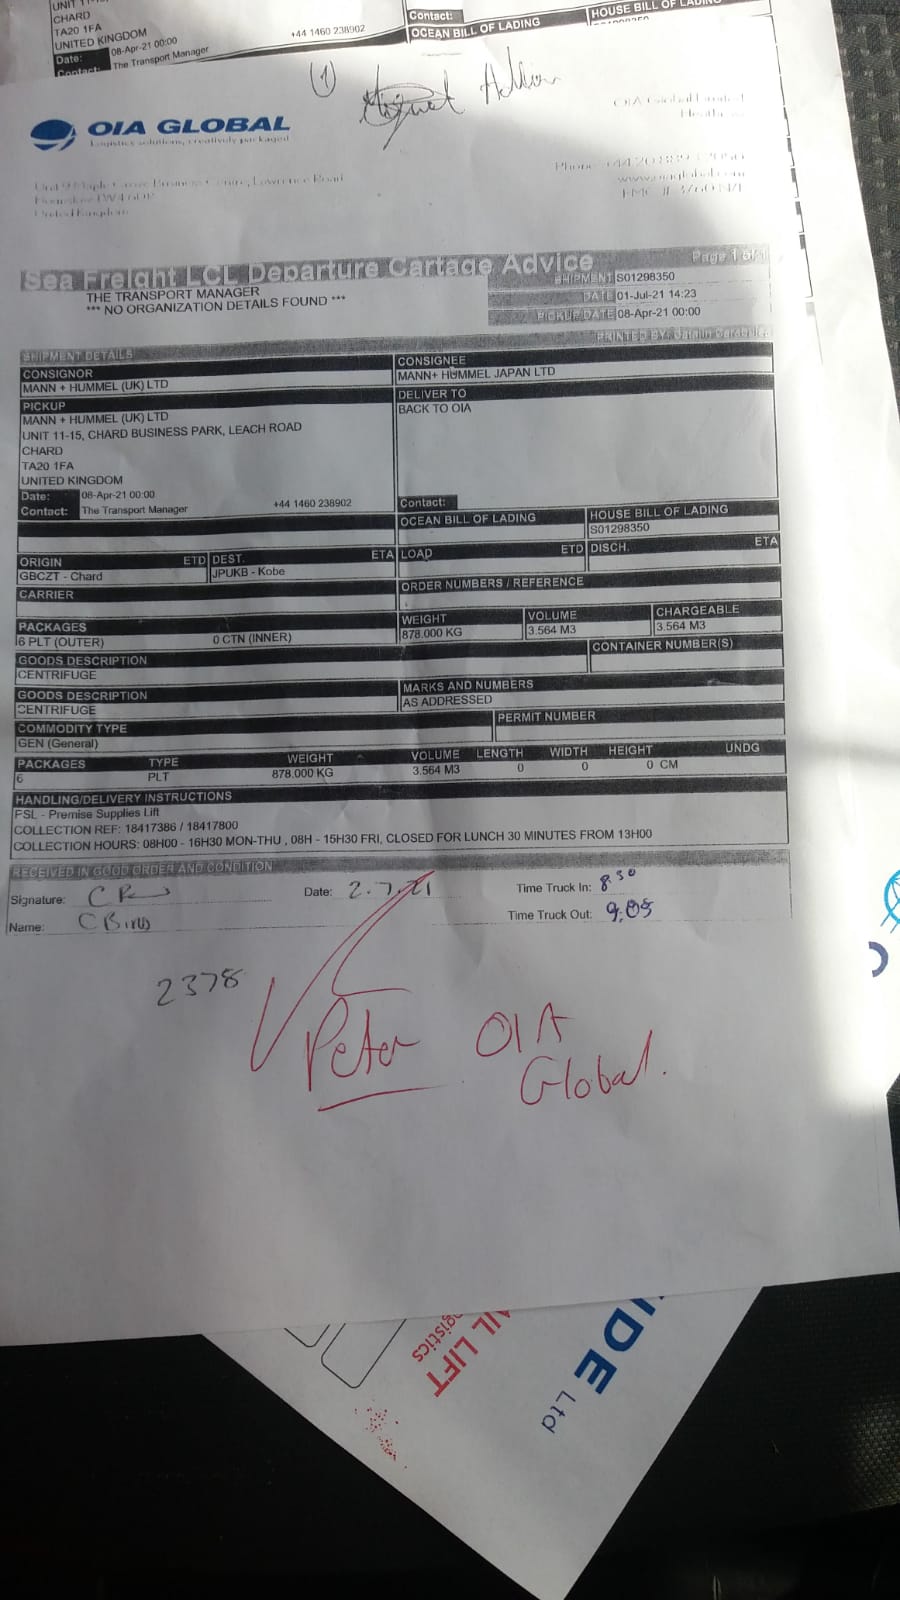 UNIT 11-
CHARD
TA20 1FA
UNITED KINGDOM
Date: 08-Apr-21 00:00
Contact: The Transport Manager
+44 1460 238902
Contact:
OCEAN BILL OF LADING
HOUSE BILL OF LADING
(1)
OIA GLOBAL
Logistics solutions, creatively packaged
OIA Global Limited
Unit 9 Maple Grove Business Centre, Lawrence Road
Hounslow TW4 6DR
United Kingdom
Phone
www.oiaglobal.com
Sea Freight LCL Departure Cartage Advice
Page 1 of 1
THE TRANSPORT MANAGER
*** NO ORGANIZATION DETAILS FOUND ***
SHIPMENT S01298350
DATE 01-Jul-21 14:23
PICKUP DATE 08-Apr-21 00:00
PRINTED BY:
SHIPMENT DETAILS
CONSIGNOR
MANN + HUMMEL (UK) LTD
CONSIGNEE
MANN+ HUMMEL JAPAN LTD
PICKUP
MANN + HUMMEL (UK) LTD
UNIT 11-15, CHARD BUSINESS PARK, LEACH ROAD
CHARD
TA20 1FA
UNITED KINGDOM
Date: 08-Apr-21 00:00
Contact: The Transport Manager +44 1460 238902
DELIVER TO
BACK TO OIA
Contact:
OCEAN BILL OF LADING
HOUSE BILL OF LADING
S01298350
ORIGIN ETD DEST. ETA LOAD ETD DISCH. ETA
GBCZT - Chard JPUKB - Kobe
CARRIER
ORDER NUMBERS / REFERENCE
PACKAGES WEIGHT VOLUME CHARGEABLE
6 PLT (OUTER) 0 CTN (INNER) 878.000 KG 3.564 M3 3.564 M3
GOODS DESCRIPTION
CENTRIFUGE
CONTAINER NUMBER(S)
GOODS DESCRIPTION
CENTRIFUGE
MARKS AND NUMBERS
AS ADDRESSED
COMMODITY TYPE
GEN (General)
PERMIT NUMBER
PACKAGES TYPE WEIGHT VOLUME LENGTH WIDTH HEIGHT UNDG
6 PLT 878.000 KG 3.564 M3 0 0 0 CM
HANDLING/DELIVERY INSTRUCTIONS
FSL - Premise Supplies Lift
COLLECTION REF: 18417386 / 18417800
COLLECTION HOURS: 08H00 - 16H30 MON-THU , 08H - 15H30 FRI, CLOSED FOR LUNCH 30 MINUTES FROM 13H00
RECEIVED IN GOOD ORDER AND CONDITION
Signature: Date: 2.7.21 Time Truck In: 8.30
Name: Time Truck Out: 9.05
2378
Peter OIA
Global.
IDE Ltd
AIL LIFT
gistics